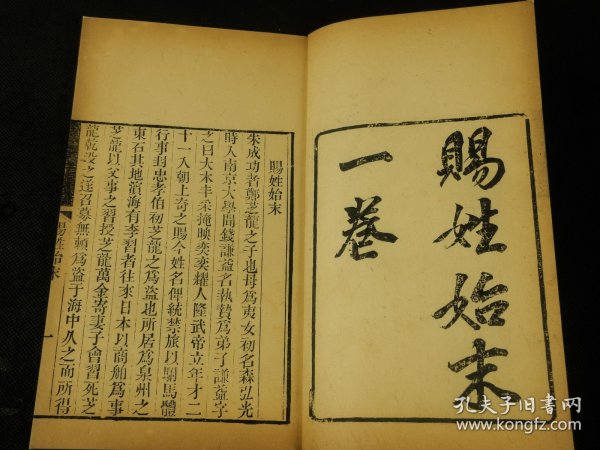 賜姓始末
一卷
賜姓始末
朱成功者鄭芝龍之子也母為夷女初名森弘光
時入南京大學聞錢謙益名執贄為弟子謙益字
之曰大木丰采掩映奕奕耀人隆武帝立年才二
十一入朝上奇之賜今姓名俾統禁旅以駙馬體
行事封忠孝伯初芝龍之為盜也所居為泉州之
東石其地濱海有李習者往來日本以商舶為事
芝龍以父事之習授芝龍萬金寄妻子會習死芝
龍乾沒之遂召募無賴為盜于海中久之而所得
賜姓始末
一
孔夫子旧书网
www.kongfz.com